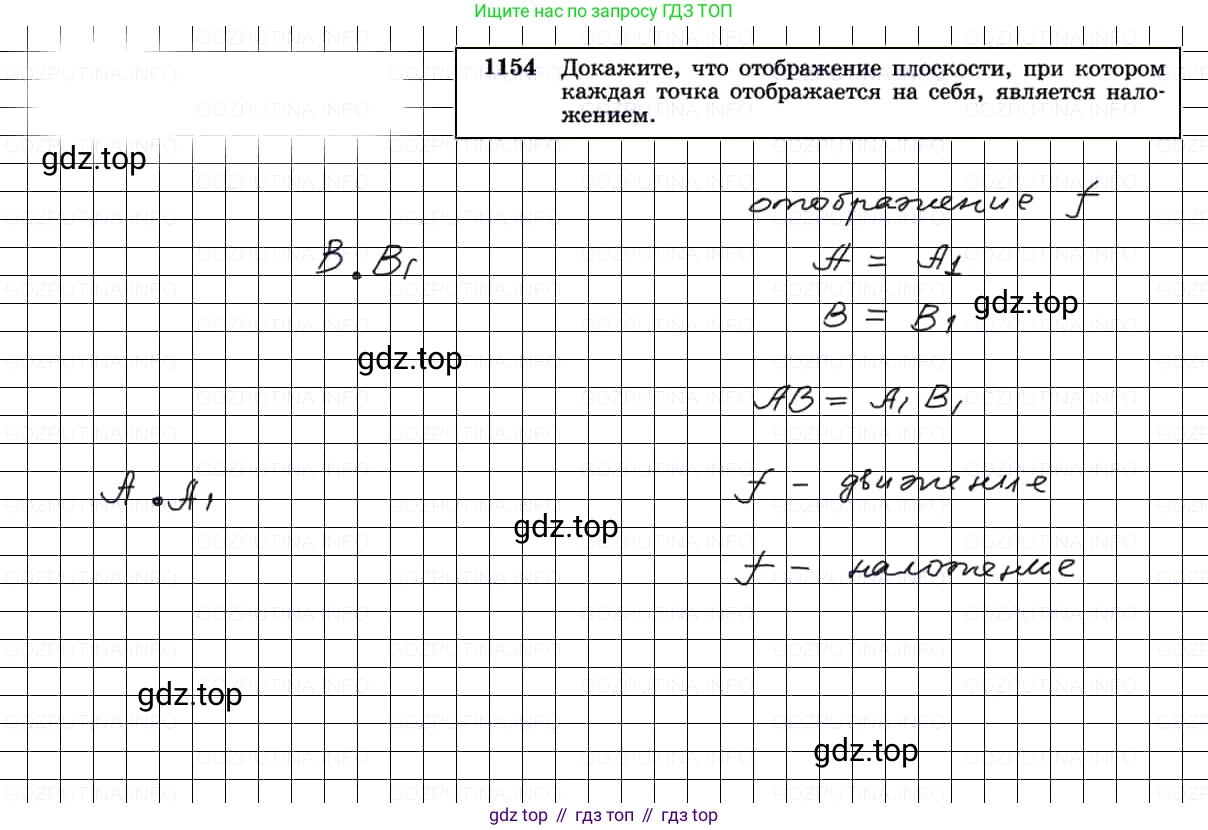 Ищите нас по запросу ГДЗ ТОП
1154 Докажите, что отображение плоскости, при котором
каждая точка отображается на себя, является нало-
жением.
gdz.top
отображение f
B . B₁
A = A₁
B = B₁
gdz.top
gdz.top
AB = A₁ B₁
A . A₁
f - движение
gdz.top
f - наложение
gdz.top
gdz.top
gdz top // гдз топ // гдз top
GDZPUTINA.INFO